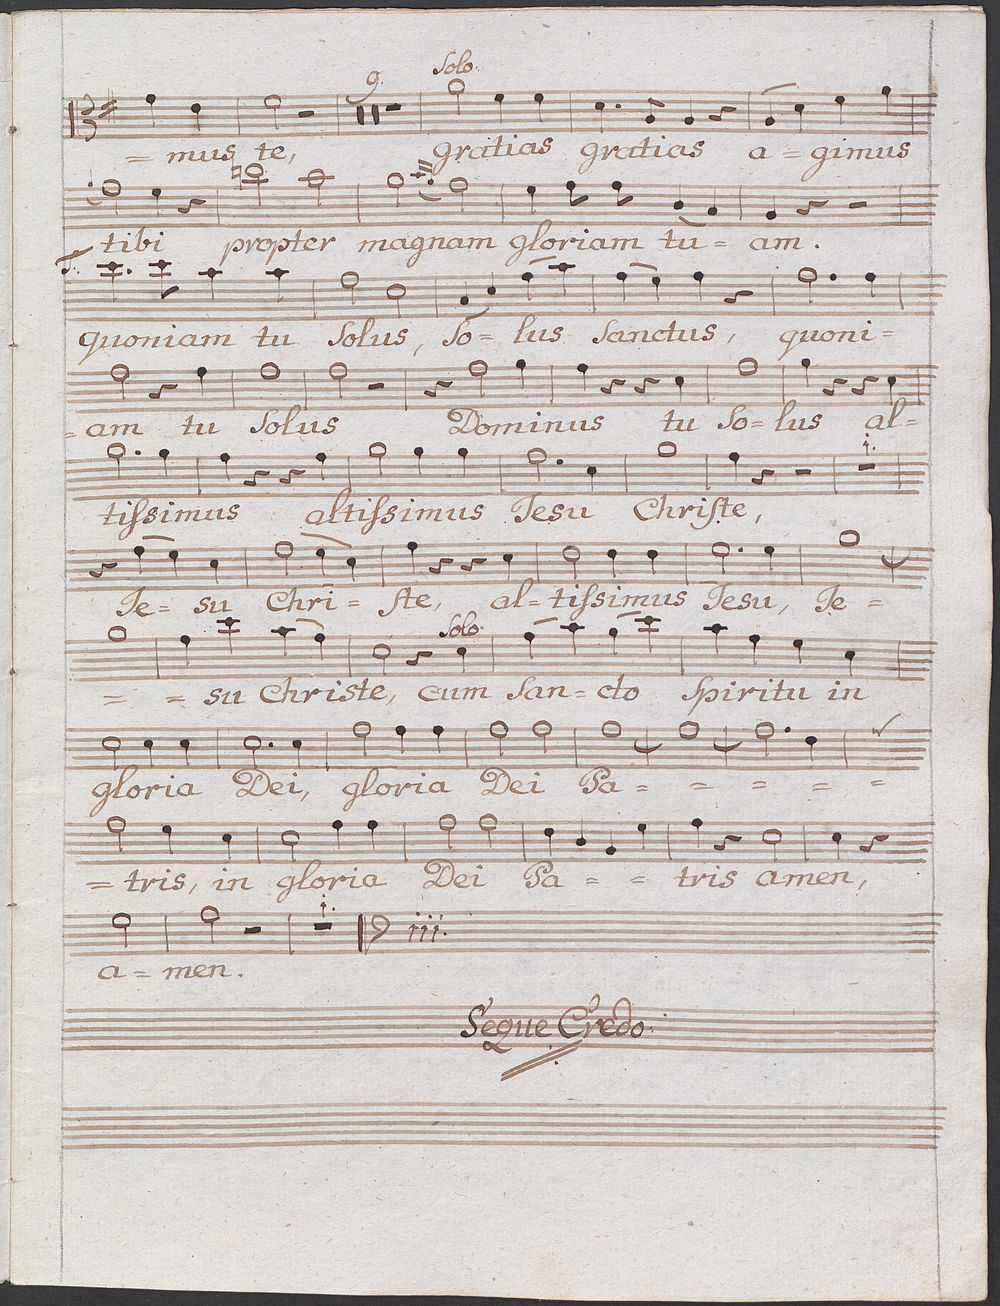 9. Solo.
= mus te, gratias gratias a = gimus
tibi propter magnam gloriam tu = am.
T.
quoniam tu solus, so = lus sanctus, quoni =
= am tu solus Dominus tu so = lus al =
1.
tiſsimus altiſsimus Jesu Chriſte,
Je = su Chri = ſte, al = tiſsimus Jesu, Je =
Solo.
= = su Christe, cum san = cto spiritu in
gloria Dei, gloria Dei Pa = = = = =
= tris, in gloria Dei Pa = = tris amen,
1. iii.
a = men.
Seque Credo.